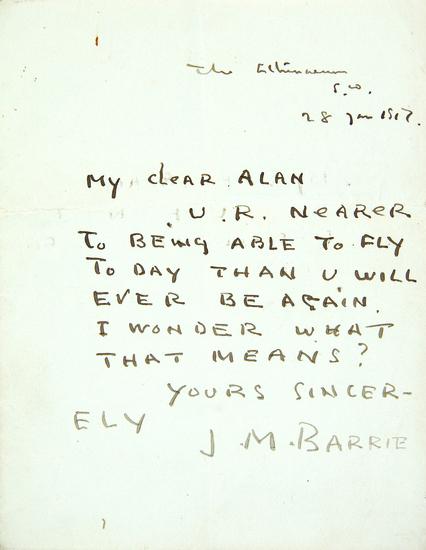 The Athenaeum
S.W.
28 Jan 1917.
My dear ALAN
U.R. NeAReR
To BEING ABLE To FLY
To DAY THAN U WILL
EVER BE AGAIN.
I WONDER WHAT
THAT MEANS?
YOURS SINCER-
ELY
J.M.BARRIE